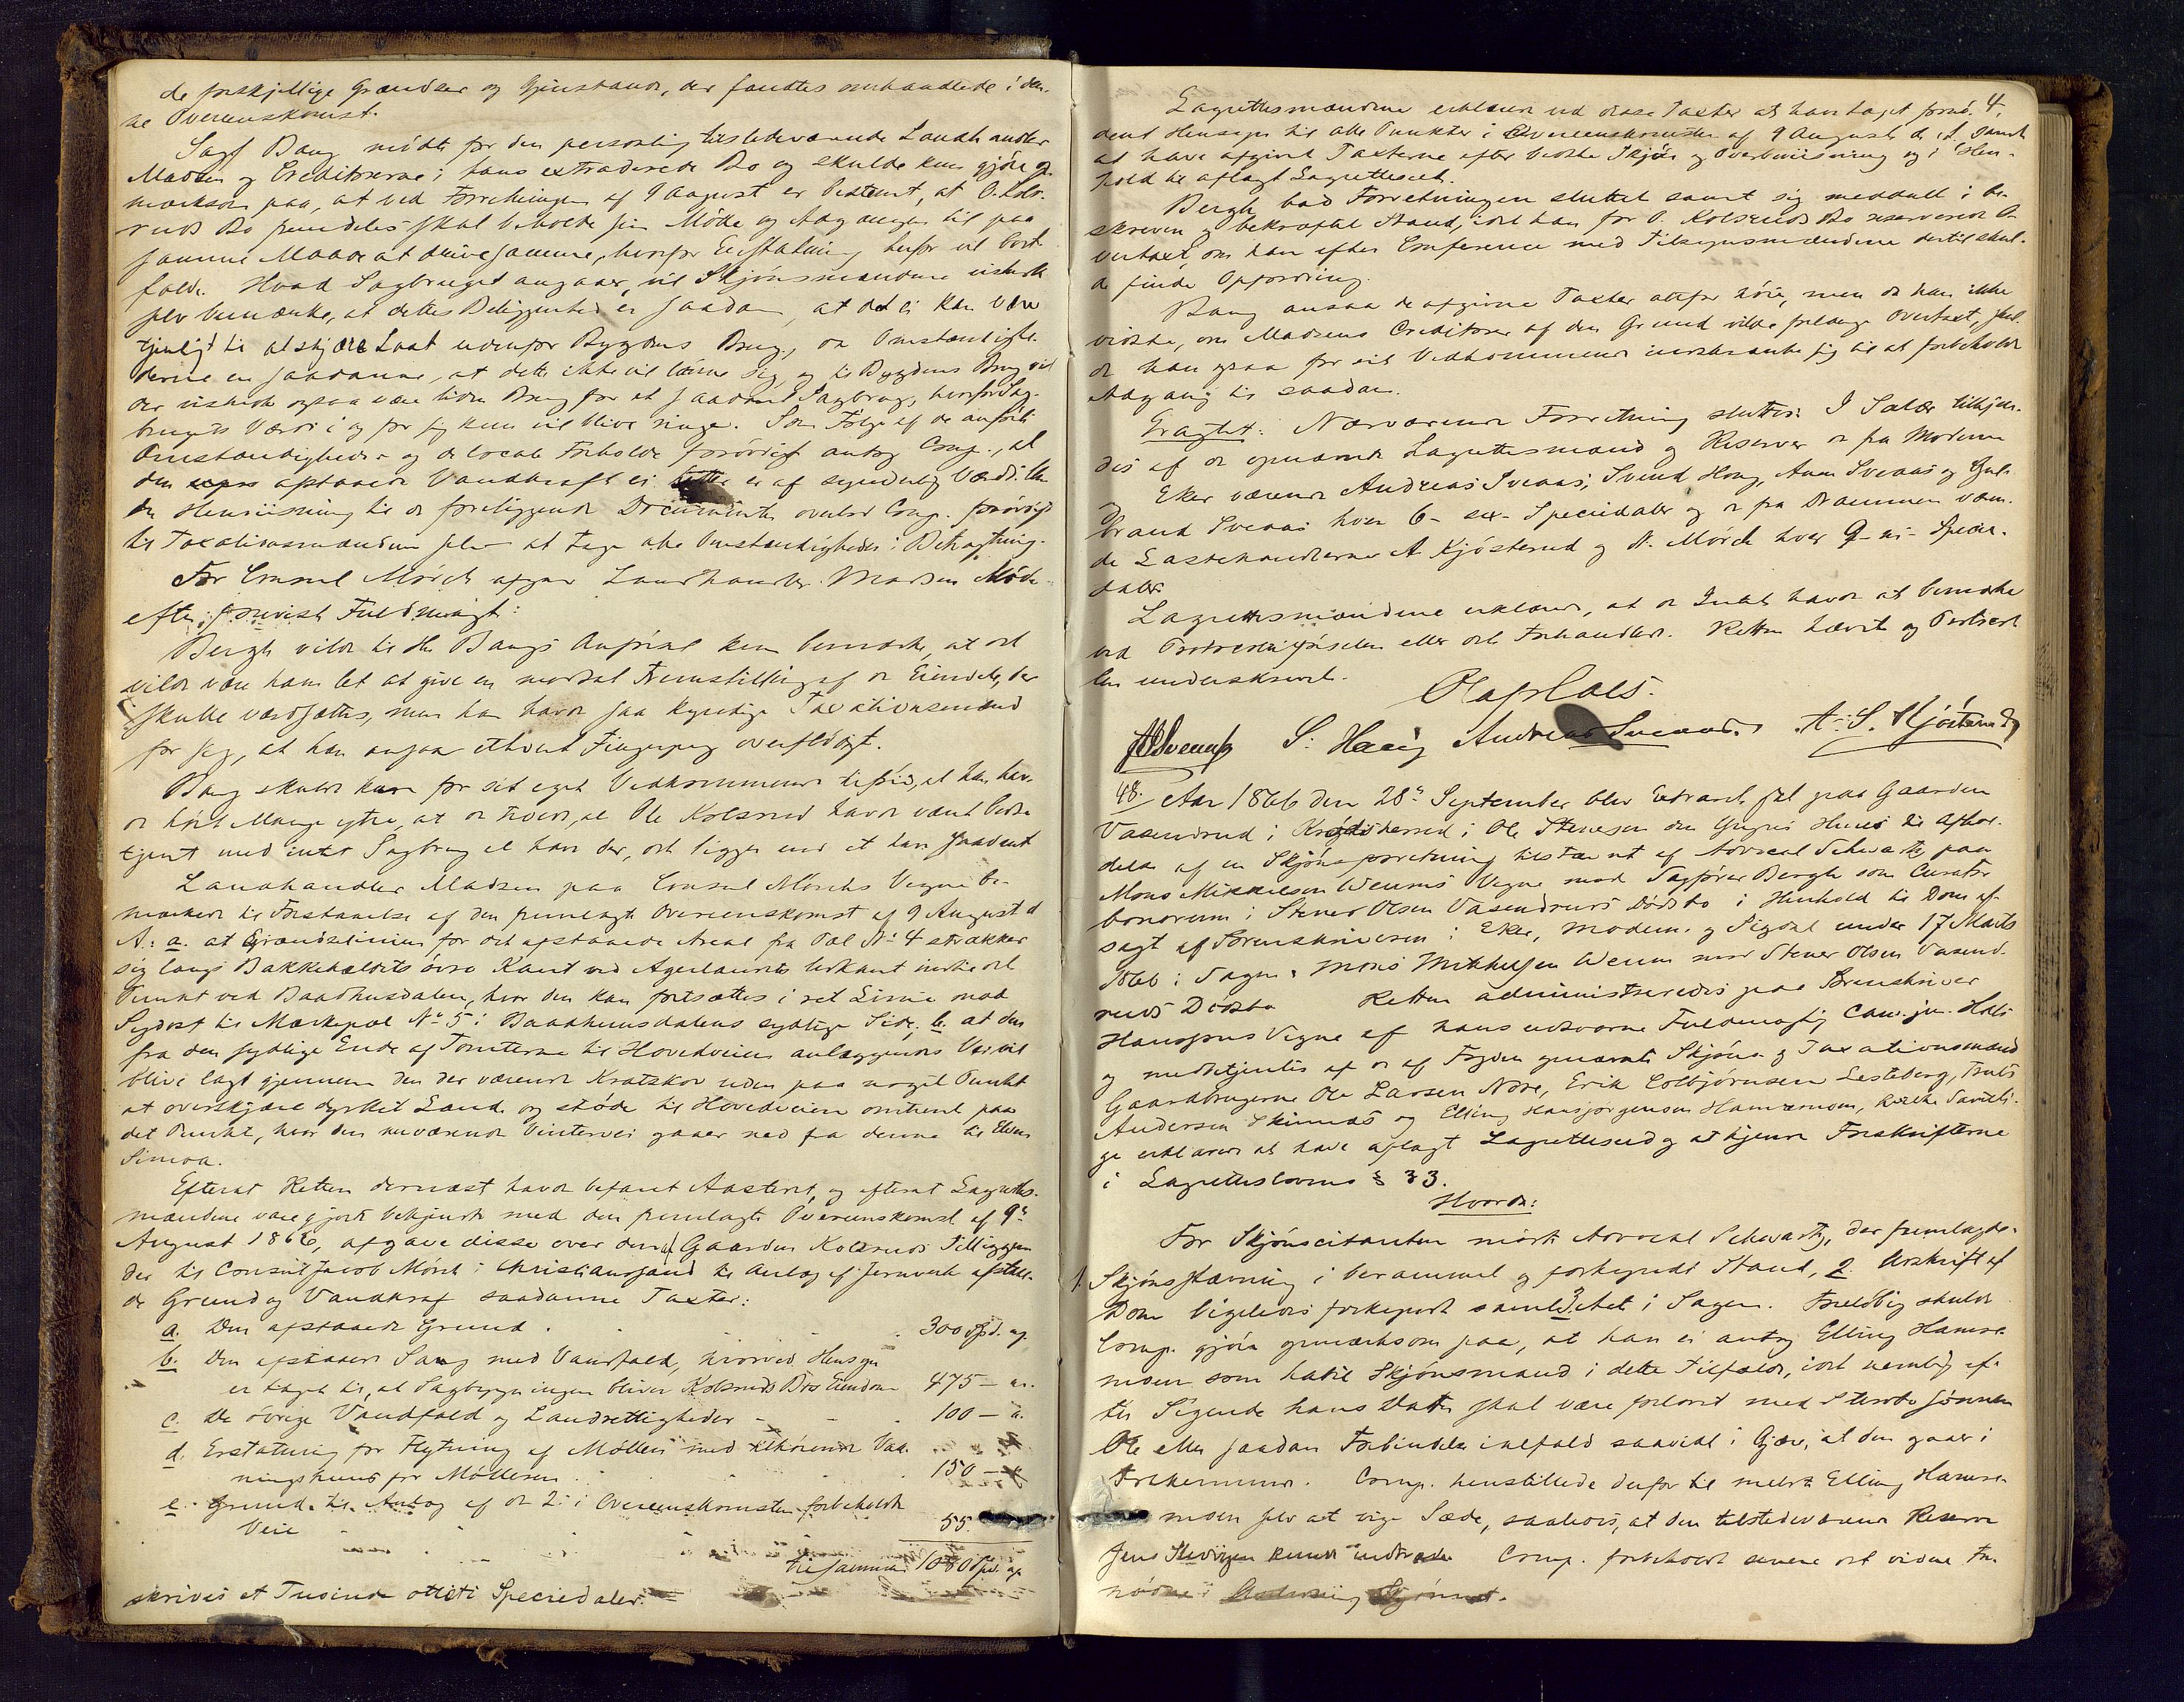 de forskjellige Grændser og Gjenstande, der fandtes omhandlede i den-
ne Overeenskomst.
Sagf Bang mødte for den personlig tilstedeværende Landhandler
Madsen og Creditorerne i hans extraderede Bo og skulde kun gjøre op-
mærksom paa, at ved Forretningen af 9 August er bestemt, at O. Kols-
ruds Bo fremdeles skal beholde sin Mølle og Adgangen til paa
samme Maade at drive samme, hvorfor Erstatning herfor vil bort-
falde. Hvad Sagbruget angaaer, vil Skjønsmændene vistnok
selv bemærke, at dettes Beliggenhed er saadan, at det ei kan være
tjenligt til at skjære Last udenfor Bygdens Brug, da Omstændighe-
derne en saadanne, at dette ikke vil lønne sig, og til Bygdens Brug vil
der vistnok ogsaa være liden Brug for et saadant Sagbrug, hvorfor Sag-
brugets Værdi i og for sig kun vil blive ringe. Som Følge af de anførte
Omstændigheder og de locale Forholde forøvrigt antog Comp., at
den afstaaede Vandkraft ei er af synderlig Værdi. Un-
der Henviisning til de foreliggende Documenter overlod Comp. forøvrigt
til Taxationsmændene selv at tage alle Omstændigheder i Betragtning.
For Consul Mørch afgav Landhandler Madsen Møde
efter forevist Fuldmagt:
Bergh vilde til Hr Bangs Anførsel kun bemærke, at det
vilde være ham let at give en modsat Fremstilling af de Eiendele, der
skulle værdsættes, men han havde saa kyndige Taxationsmænd
for sig, at han ansaa ethvert Fingerpeg overflødigt.
Bang skulde kun for sit eget Vedkommende tilføie, at han hav-
de hørt Mange ytre, at de troede, at Ole Kolsrud havde været bedre
tjent med intet Sagbrug at have der, det ligger end at have saadant
Landhandler Madsen paa Consul Mørchs Vegne be-
mærkede til Forstaaelse af den fremlagte Overeenskomst af 9 August d
A.: a. at Grændselinien for det afstaaede Areal fra Pæl No 4 strækker
sig langs Bakkehældets øvre Kant ved Agerlandets Udkant indtil det
Punkt ved Baadhusdalen, hvor den kan fortsættes i ret Linie mod
Sydost til Mærkepæl No 5 i Baadhuusdalens sydlige Side; b. at den
fra den sydlige Ende af Tomterne til Hovedveien anlæggendes Vei vil
blive lagt gjennem den der værende Kratskov uden paa noget Punkt
at overskjære dyrket Land og støde til Hovedveien omtrent paa
det Punkt, hvor den nuværende Vintervei gaaer ned fra denne til Elven
Simoa.
Efterat Retten dernæst havde befaret Aastedet, og efterat Lagrettes-
mændene vare gjorte bekjendte med den fremlagte Overeenskomst af 9de
August 1866, afgave disse over den af Gaarden Kolsruds Tilliggen-
der til Consul Jacob Mørch i Christianssand til Anlæg af Jernverk afstaae-
de Grund og Vandkraf saadanne Taxter:
a. Den afstaaede Grund . . . 300 Spd. og
b. Den afstaaede Saug med Vandfald, hvorved Hensyn
er taget til, at Sagbygningen bliver Kolsruds Bos Eiendom 475 —
c. De øvrige Vandfald og Landrettigheder - - . 100 —
d. Erstatning for Flytning af Møllen med tilhørende Vaa-
ningshuus for Mølleren . . . 150 —
e. Grund til Anlæg af de 2 i Overeenskomsten forbeholdte
Veie . . . 55.
tilsammen 1080 Spd.
skrives et Tusinde otteti Speciedaler.
4.
Lagrettesmændene erklærede ved disse Taxter at have taget fornø-
dent Hensyn til alle Punkter i Overeenskomsten af 9 August d. A. samt
at have afgivet Taxterne efter bedste Skjøn og Overbeviisning og i Hen-
hold til aflagt Lagretteseed.
Bergh bad Forretningen sluttet samt sig meddeelt i be-
skreven og bekræftet Stand, idet han for O. Kolsruds Bo reserverede O-
vertaxt, om han efter Conference med Tilsynsmændene dertil skul-
de finde Opfordring.
Bang ansaa de afgivne Taxter altfor høie, men da han ikke
vidste, om Madsens Creditorer af den Grund vilde forlange Overtaxt, skul-
de han ogsaa for sit Vedkommende indskrænke sig til at forbeholde
Adgang til saadan.
Eragtet: Nærværende Forretning sluttes. I Salær tilkjen-
des af de opnævnte Lagrettesmænd og Reserver de fra Modum
og Eker værende Andreas Sveaas, Svend Houg, Anun Sveaas og Gul-
brand Sveaas hver 6 – sex – Speciedaler og de fra Drammen væren-
de Lastehandlerne A Kjøsterud og N. Mørch hver 9 – ni – Specie-
daler.
Lagrettesmændene erklærede, at de Intet havde at bemærke
ved Protocoltilførselen eller det Forhandlede. Retten hævet og Protocol-
len underskrevet.
Olaf Hals.
ASveaas S. Houg Andreas Sveaas. A. S. Kjøsterud
48. Aar 1866 den 28de September blev Extraret sat paa Gaarden
Vasendrud i Krødsherred i Ole Stenersen den Yngres Huus til Afhol-
delse af en Skjønsforretning tilstævnt af Advocat Schwartz paa
Mons Mikkelsen Weums Vegne mod Sagfører Bergh som Curator
bonorum i Stener Olsen Vasendruds Dødsbo i Henhold til Dom af-
sagt af Sorenskriveren i Eker, Modum og Sigdal under 17 Marts
1866 i Sagen: Mons Mikkelsen Weum mod Stener Olsen Vasend-
ruds Dødsbo Retten administreredes paa Sorenskriver
Hanssons Vegne af hans edsvorne Fuldmægtig Cand. jur. Hals
og medbetjentes af de af Fogden opnævnte Skjøns- og Taxationsmænd
Gaardbrugerne Ole Larsen Nore, Erik Colbjørnsen Lesteberg, Truls
Andersen Skinnes og Elling Hansjørgensen Hamremoen, hvilke Samtli-
ge erklærede at have aflagt Lagretteseed og at kjende Forskrifterne
i Lagretteslovens § 33.
Hvorda:
For Skjønscitanten mødte Advocat Schwartz, der fremlagde.
1. Skjønsstævning i berammet og forkyndt Stand, 2. Udskrift af
Dom ligeledes forkyndt samt 3. Actet i Sagen. Foreløbig skulde
Comp. gjøre opmærksom paa, at han ei antog Elling Hamre-
moen som habil Skjønsmand i dette Tilfælde, idet nemlig ef-
ter Sigende hans Datter skal være forlovet med Stervbosønnen
Ole eller saadan Forbindelse ialfald saavidt i Gjære, at den gaaer i
Folkemunde. Comp. henstillede derfor til meldte Elling Hamre-
moen selv at vige Sæde, saaledes, at den tilstedeværende Reserve
Jens kunde indtræde Comp. forbeholdt senere det videre for-
nødne i Skjønnet.